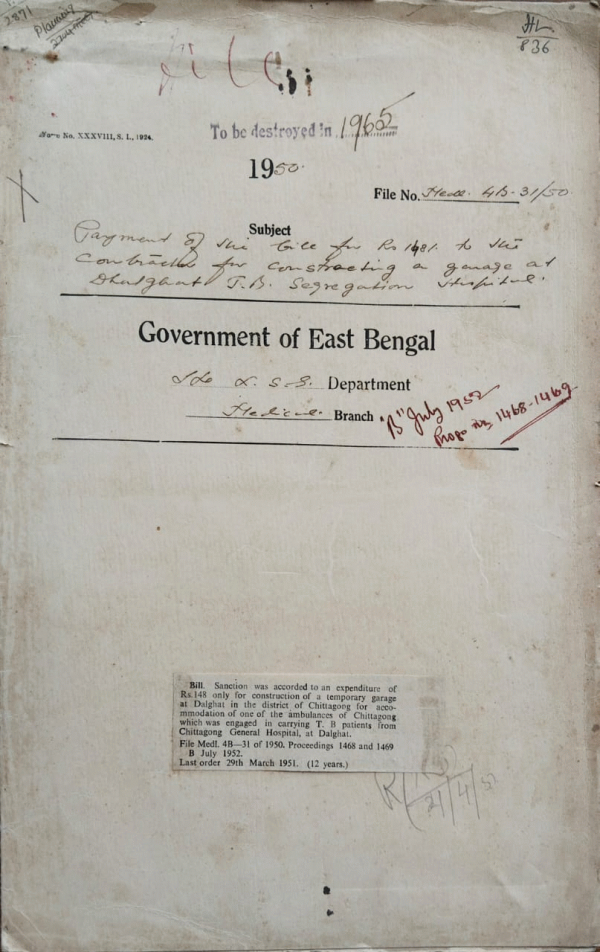 2871
Planning
836
Form No. XXXVIII, S. I., 1924.
To be destroyed in 1965
1950.
File No. Medl. 4B-31/50
Subject
Payment of the bill for Rs 148/- to the
contractor for constructing a garage at
Dhalghat T.B. Segregation Hospital.
Government of East Bengal
& L. S-G. Department
Medical Branch
"B" July 1952
Progs Nos 1468-1469
Bill. Sanction was accorded to an expenditure of
Rs.148 only for construction of a temporary garage
at Dalghat in the district of Chittagong for acco-
mmodation of one of the ambulances of Chittagong
which was engaged in carrying T. B patients from
Chittagong General Hospital, at Dalghat.
File Medl. 4B—31 of 1950. Proceedings 1468 and 1469
B July 1952.
Last order 29th March 1951. (12 years.)